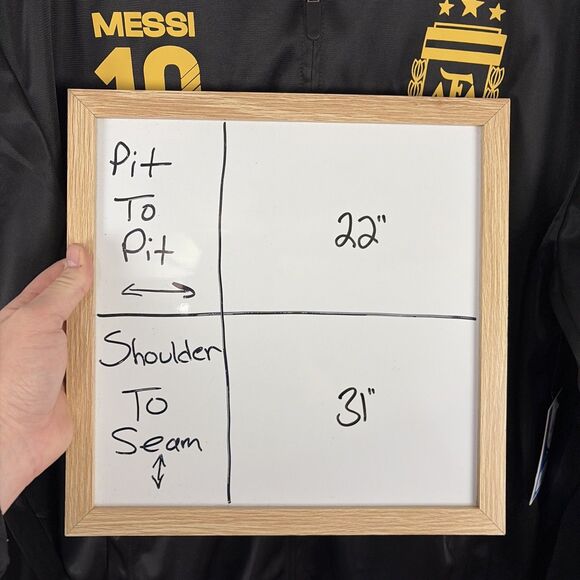 MESSI
10
AFA
Pit
To
Pit
22"
Shoulder
To
Seam
31"